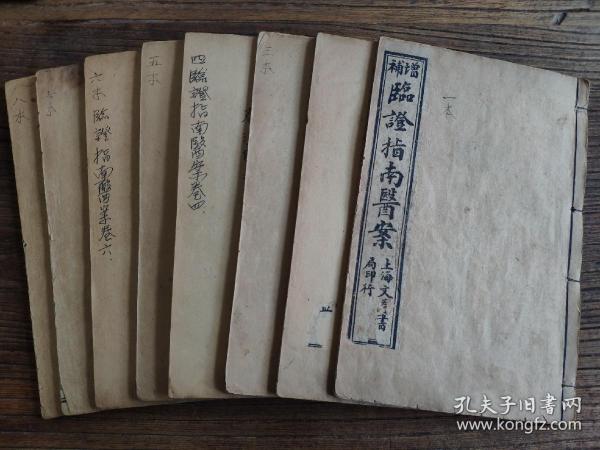 增補
臨證指南醫案
上海文書
局印行
一本
三本
四臨證指南醫案卷四
五本
六本臨證指南醫案卷六
八本
孔夫子旧书网
www.kongfz.com